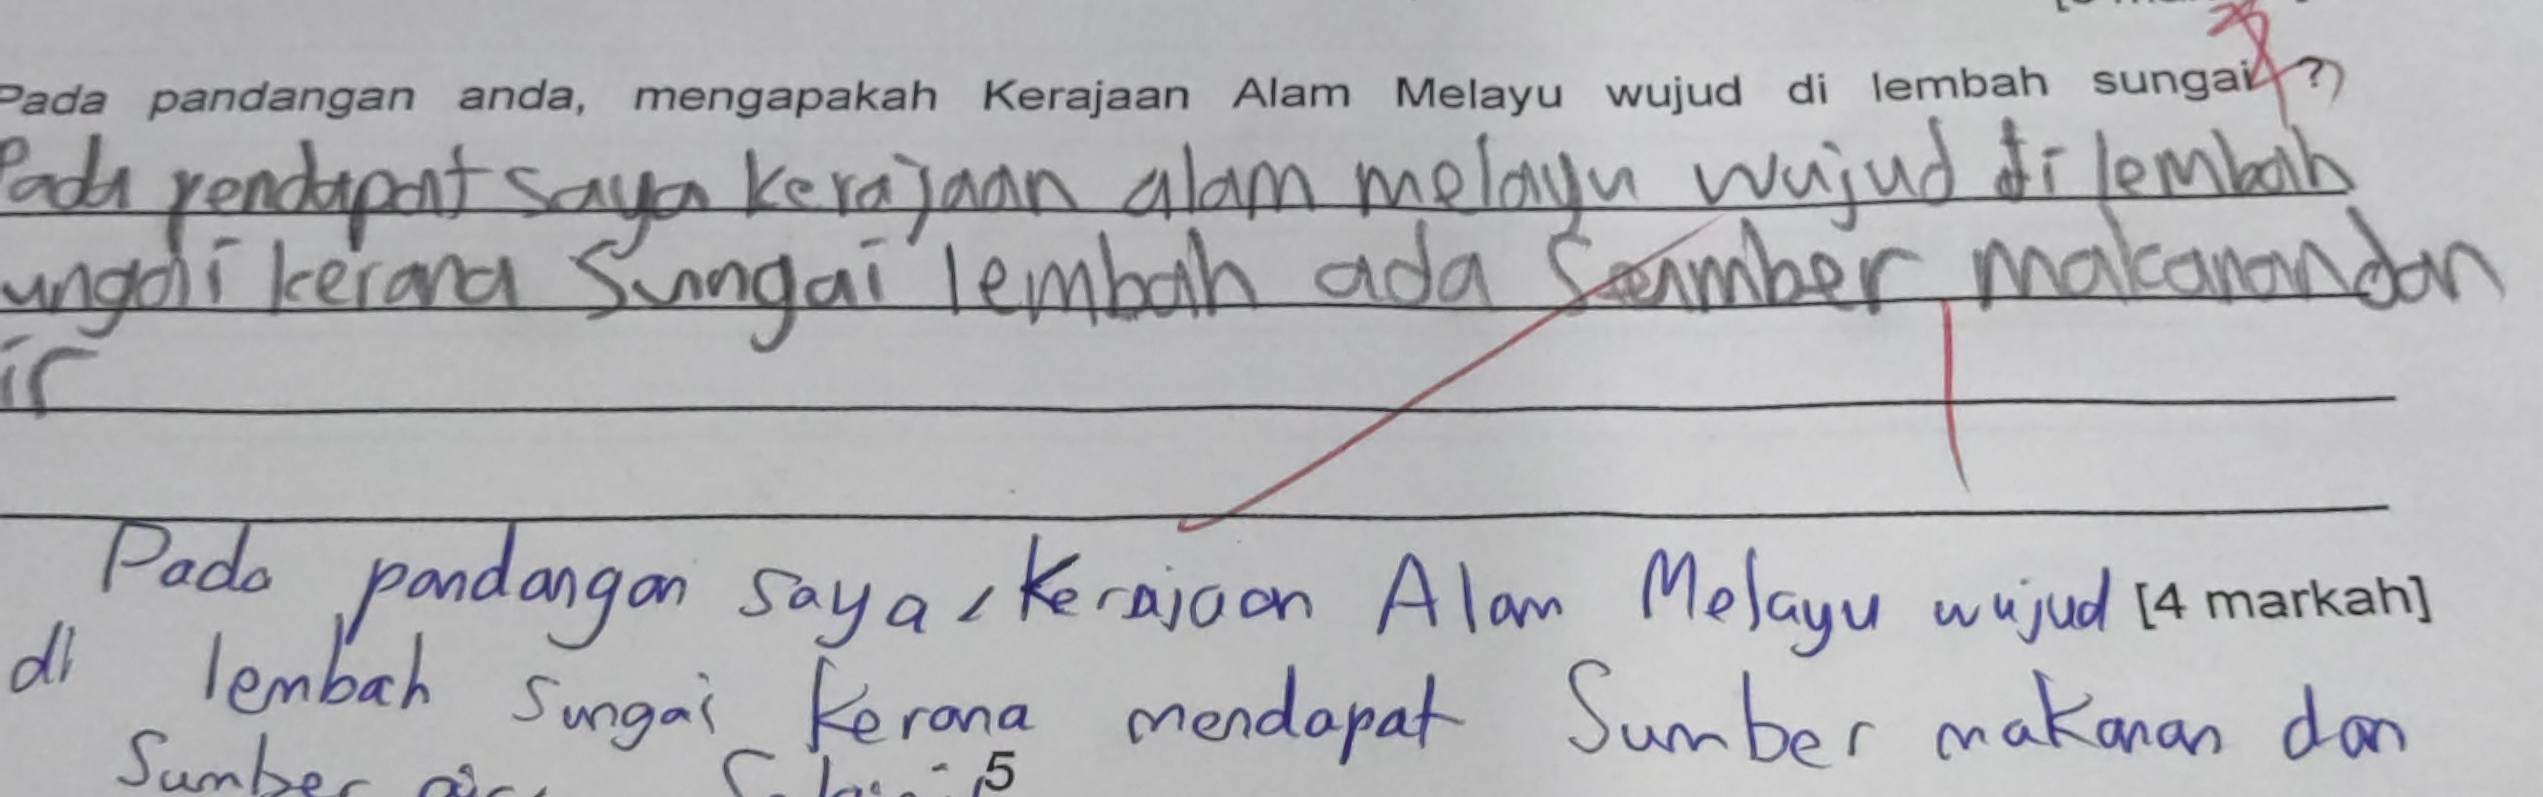 Pada pandangan anda, mengapakah Kerajaan Alam Melayu wujud di lembah sungai ?
Pada pendapat saya kerajaan alam melayu wujud di lembah
ungai kerana Sungai lembah ada Sember makanan dan
ir
Pada pandangan saya, Kerajaan Alam Melayu wujud [4 markah]
di lembah Sungai Kerana mendapat Sumber makanan dan
Sumber air
5